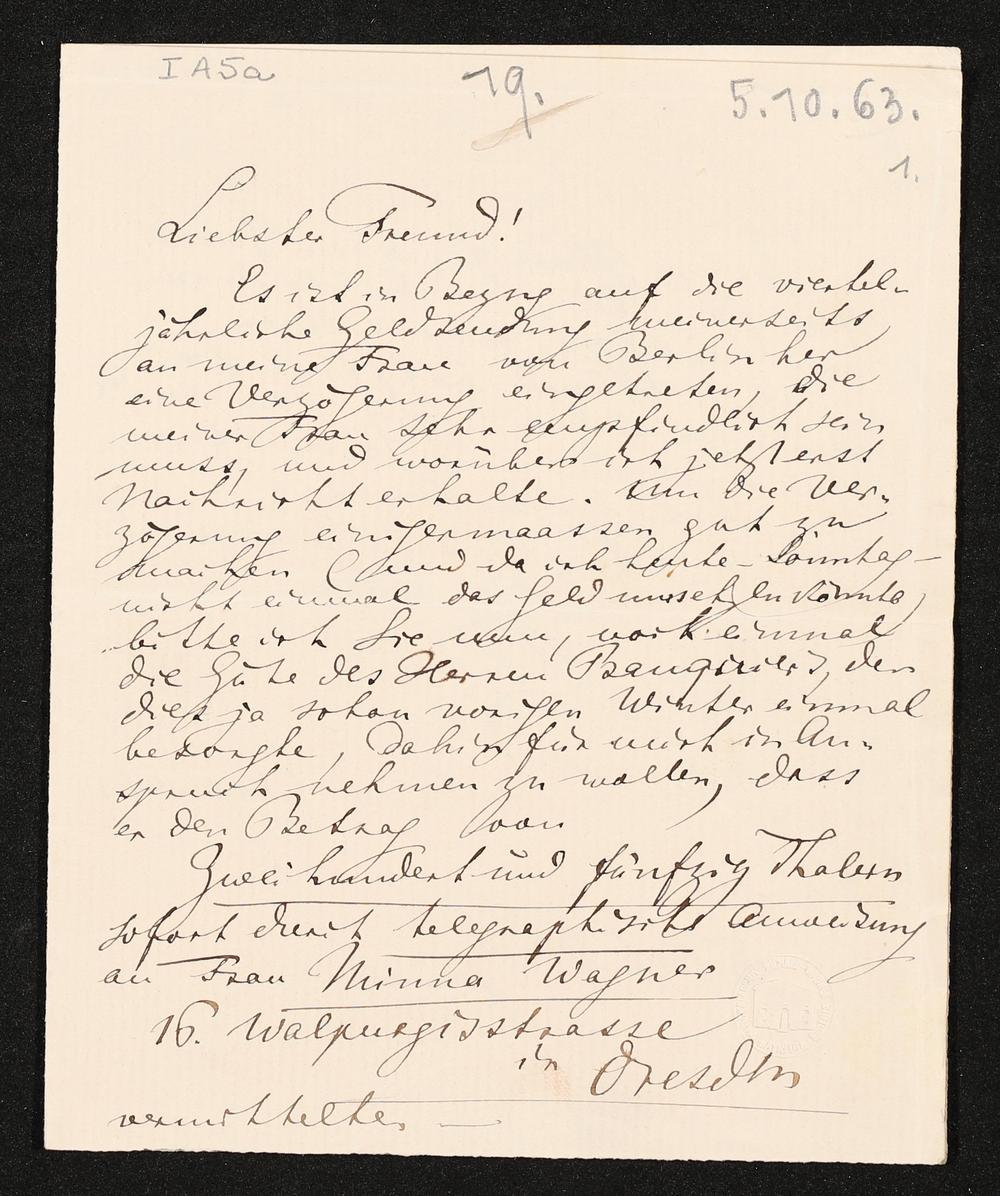 I A 5a
19.
5.10.63.
1.
Liebster Freund!
Es ist in Bezug auf die viertel-
jährliche Geldsendung meinerseits
an meine Frau von Berlin her
eine Verzögerung eingetreten, die
meiner Frau sehr empfindlich sein
muss, und worüber ich jetzt erst
Nachricht erhalte. Um die Ver-
zögerung einigermaassen gut zu
machen (und da ich heute - Sonntag -
nicht einmal das Geld umsetzen könnte)
bitte ich Sie nun, noch einmal
die Güte des Herren Banquier's, der
diess ja schon vorigen Winter einmal
besorgte, dahin für mich in An-
spruch nehmen zu wollen, dass
er den Betrag von
Zweihundert und fünfzig Thalern
sofort durch telegraphische Anweisung
an Frau Minna Wagner
16. Walpurgisstrasse
in Dresden
vermittelte. —